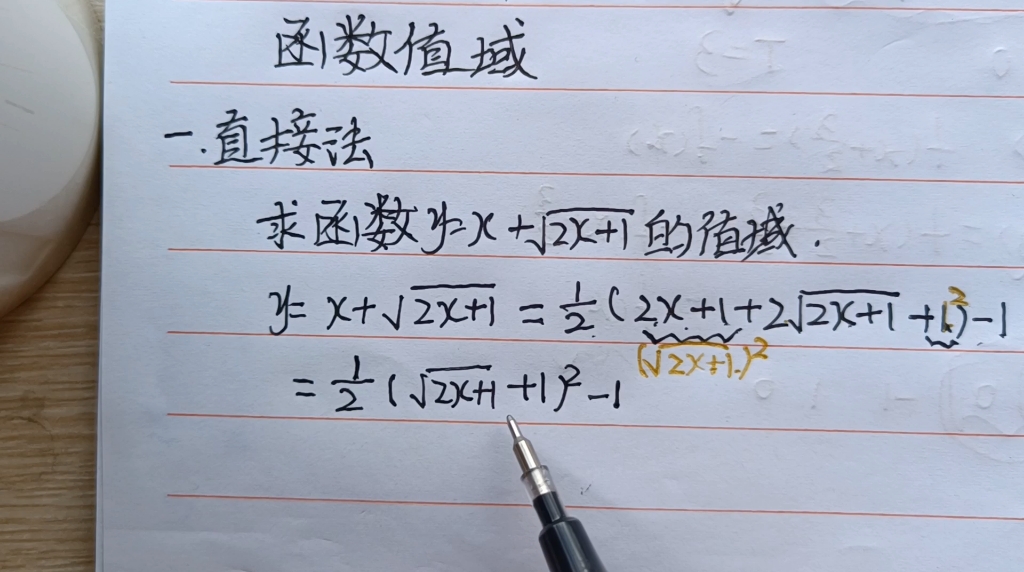 函数值域
一.直接法
求函数y=x+√2x+1的值域.
y=x+√2x+1=1/2(2x+1+2√2x+1+1²)-1
(√2x+1)²
=1/2(√2x+1+1)²-1